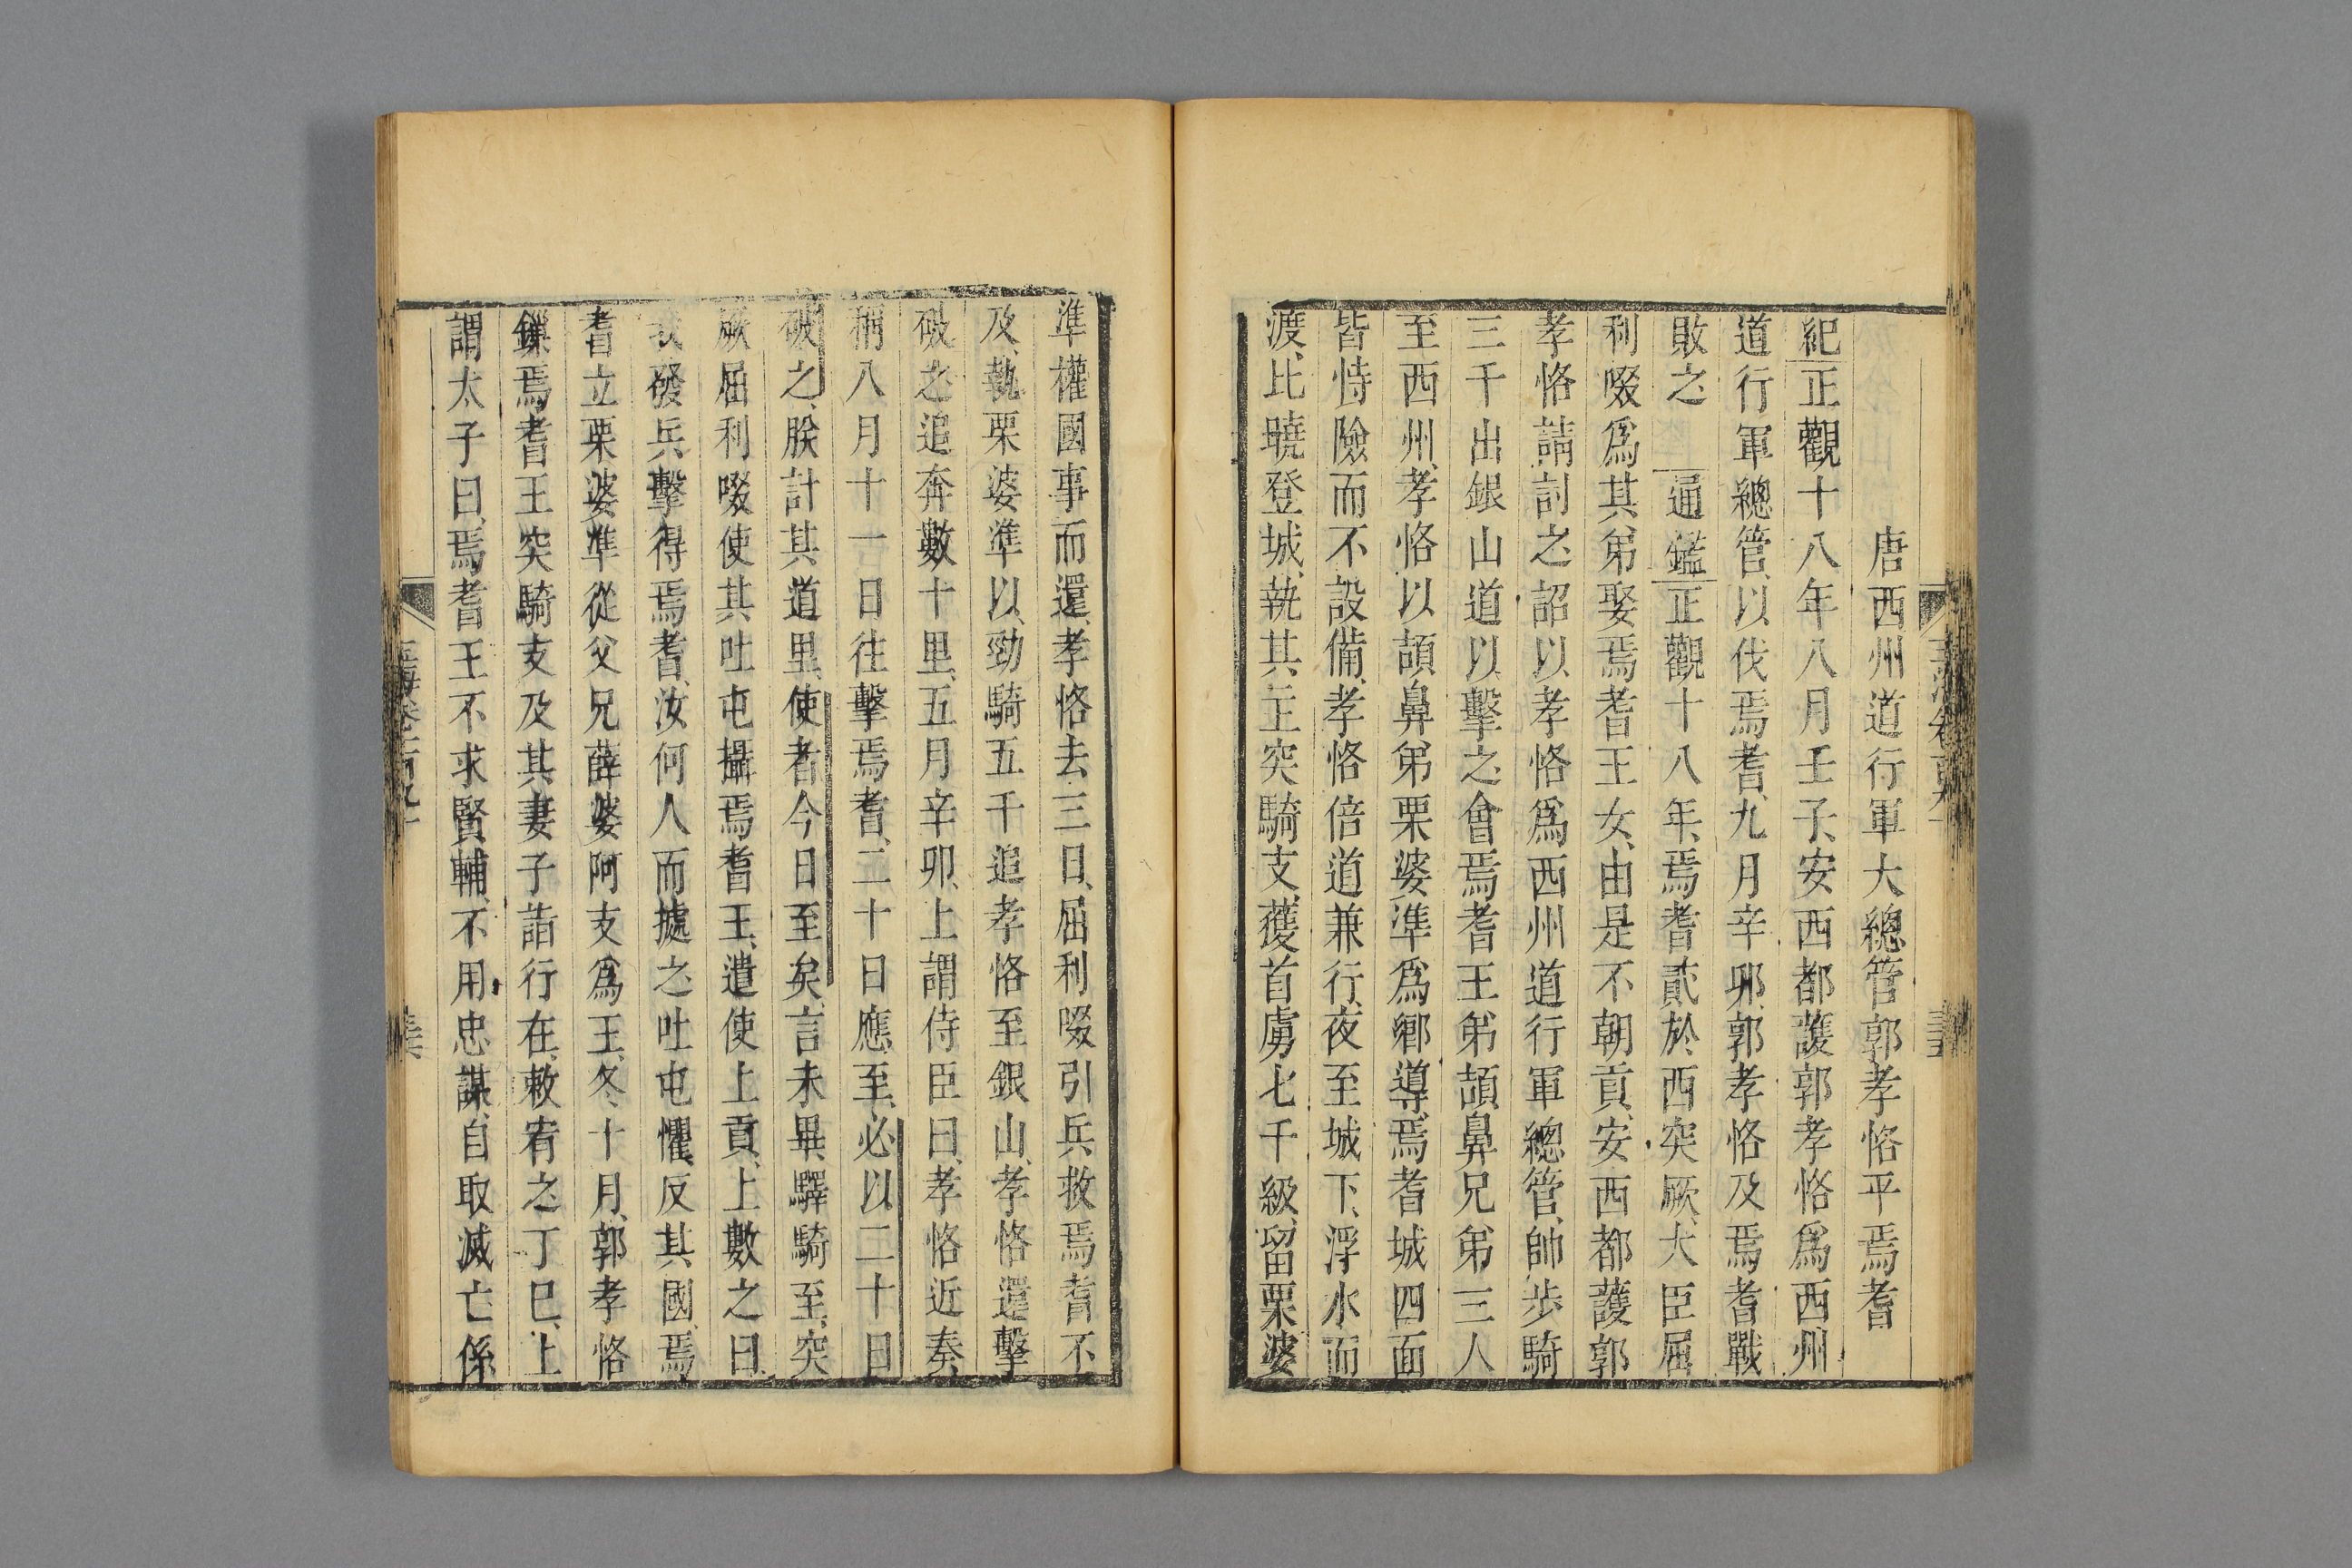 唐西州道行軍大總管郭孝恪平焉耆
紀正觀十八年八月壬子、安西都護郭孝恪爲西州
道行軍總管、以伐焉耆、九月辛卯、郭孝恪及焉耆戰
敗之通鑑正觀十八年、焉耆貳於西突厥、大臣屈
利啜爲其弟娶焉耆王女、由是不朝貢、安西都護郭
孝恪請討之、詔以孝恪爲西州道行軍總管、帥步騎
三千出銀山道以擊之、會焉耆王弟頡鼻兄弟三人
至西州、孝恪以頡鼻弟栗婆準爲鄕導、焉耆城四面
皆恃險而不設備、孝恪倍道兼行、夜至城下、浮水而
渡、比曉登城、執其王突騎支、獲首虜七千級、留栗婆
準權國事而還、孝恪去三日、屈利啜引兵救焉耆不
及、執栗婆準以、勁騎五千追孝恪至銀山、孝恪還擊
破之、追奔數十里、五月辛卯、上謂侍臣曰、孝恪近奏、
稱八月十一日往擊焉耆、二十日應至、必以二十日
破之、朕計其道里、使者今日至矣、言未畢、驛騎至、突
厥屈利啜使其吐屯攝焉耆王、遣使上貢、上數之曰、
我發兵擊得焉耆、汝何人而據之、吐屯懼、反其國、焉
耆立栗婆準從父兄薛婆阿支爲王、冬十月、郭孝恪
鏁焉耆王突騎支及其妻子詣行在、敕宥之、丁巳、上
謂太子曰、焉耆王不求賢輔、不用忠謀、自取滅亡、係